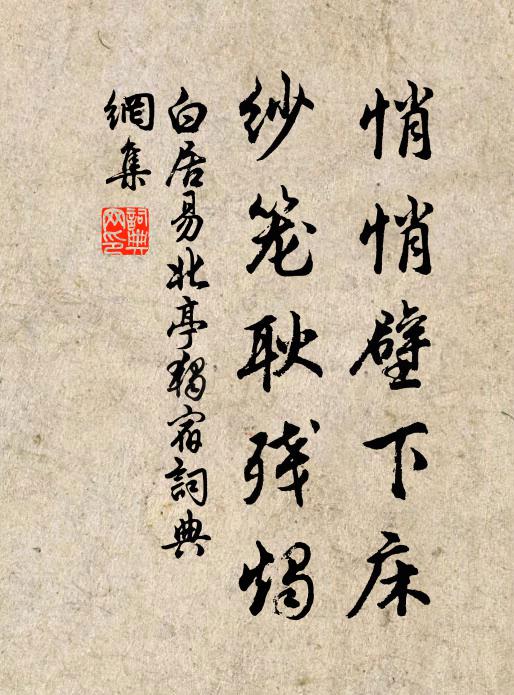 悄悄壁下床
纱笼耿残烛
白居易北亭独宿詞典
網集
詞典
网印